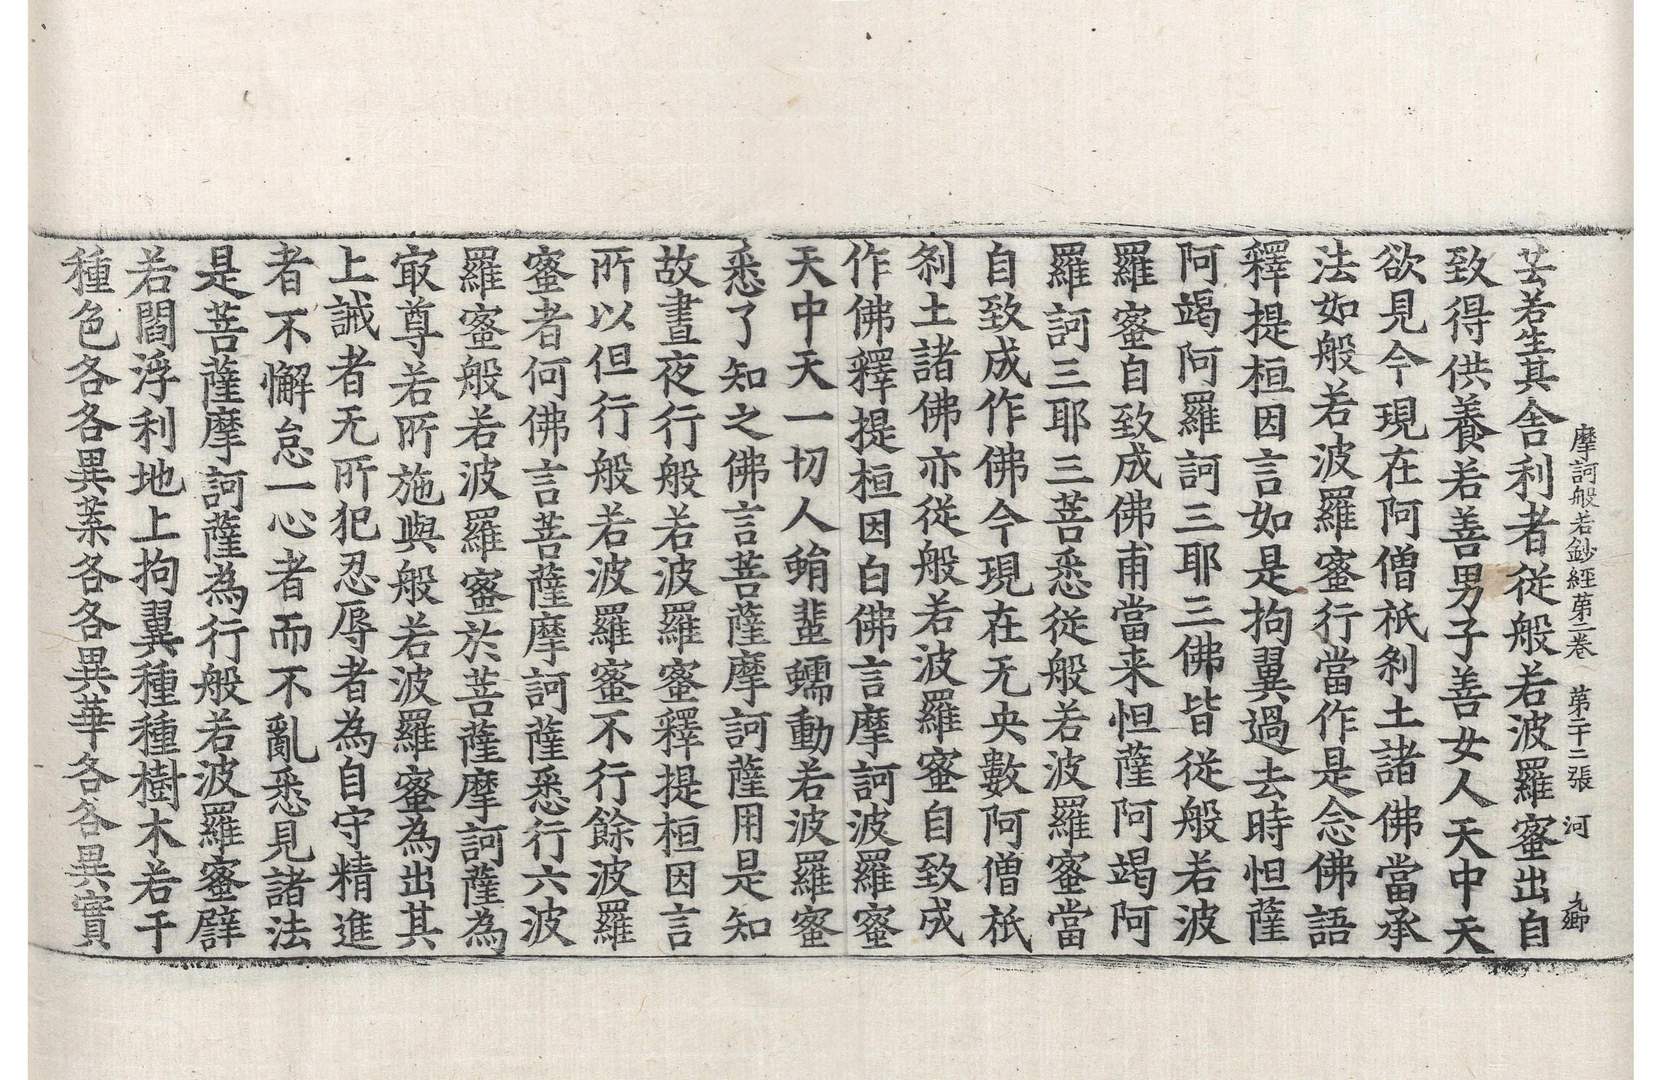 摩訶般若鈔經第二卷　第二十二張　河　九鄉
苦若生其舍利者從般若波羅蜜出自
致得供養若善男子善女人天中天
欲見今現在阿僧祇剎土諸佛當承
法如般若波羅蜜行當作是念佛語
釋提桓因言如是拘翼過去時怛薩
阿竭阿羅訶三耶三佛皆從般若波
羅蜜自致成佛甫當来怛薩阿竭阿
羅訶三耶三菩悉從般若波羅蜜當
自致成作佛今現在无央數阿僧祇
剎土諸佛亦從般若波羅蜜自致成
作佛釋提桓因白佛言摩訶波羅蜜
天中天一切人蜎蜚蠕動若波羅蜜
悉了知之佛言菩薩摩訶薩用是知
故晝夜行般若波羅蜜釋提桓因言
所以但行般若波羅蜜不行餘波羅
蜜者何佛言菩薩摩訶薩悉行六波
羅蜜般若波羅蜜於菩薩摩訶薩為
㝡尊若所施與般若波羅蜜為出其
上誡者无所犯忍辱者為自守精進
者不懈怠一心者而不亂悉見諸法
是菩薩摩訶薩為行般若波羅蜜譬
若閻浮利地上拘翼種種樹木若干
種色各各異葉各各異華各各異實